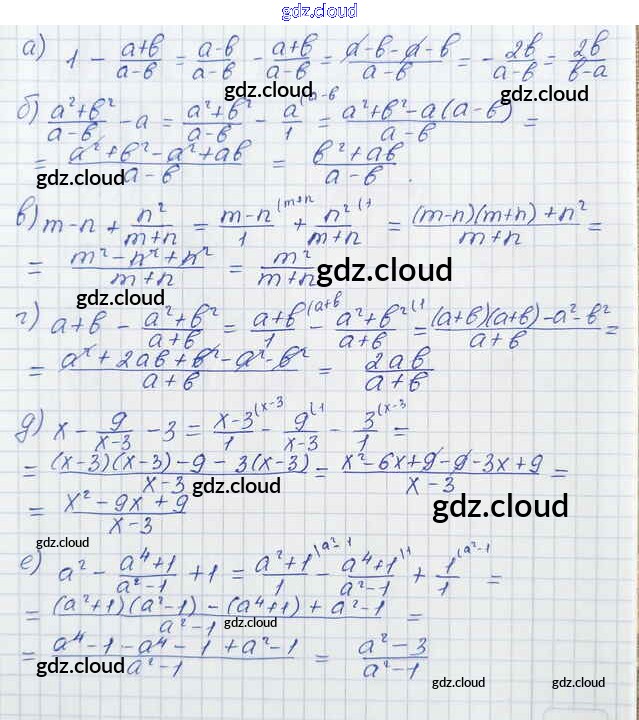 gdz.cloud
а) 1 - (a+b)/(a-b) = (a-b)/(a-b) - (a+b)/(a-b) = (a-b-a-b)/(a-b) = - 2b/(a-b) = 2b/(b-a)
gdz.cloud gdz.cloud
б) (a²+b²)/(a-b) - a = (a²+b²)/(a-b) - a/1 (a-b = (a²+b²-a(a-b))/(a-b) =
gdz.cloud
= (a²+b²-a²+ab)/(a-b) = (b²+ab)/(a-b).
gdz.cloud gdz.cloud
в) m-n + n²/(m+n) = (m-n)/1 (m+n + n²/(m+n) (1 = ((m-n)(m+n)+n²)/(m+n) =
= (m²-n²+n²)/(m+n) = m²/(m+n)
gdz.cloud gdz.cloud
г) a+b - (a²+b²)/(a+b) = (a+b)/1 (a+b - (a²+b²)/(a+b) (1 = ((a+b)(a+b)-a²-b²)/(a+b) =
= (a²+2ab+b²-a²-b²)/(a+b) = 2ab/(a+b)
д) x - 9/(x-3) - 3 = (x-3)/1 (x-3 - 9/(x-3) (1 - 3/1 (x-3 =
= ((x-3)(x-3)-9-3(x-3))/(x-3) = (x²-6x+9-9-3x+9)/(x-3) =
gdz.cloud gdz.cloud
= (x²-9x+9)/(x-3)
gdz.cloud
е) a² - (a⁴+1)/(a²-1) + 1 = (a²+1)/1 (a²-1 - (a⁴+1)/(a²-1) (1 + 1/1 (a²-1 =
= ((a²+1)(a²-1)-(a⁴+1)+a²-1)/(a²-1) =
gdz.cloud
= (a⁴-1-a⁴-1+a²-1)/(a²-1) = (a²-3)/(a²-1)
gdz.cloud gdz.cloud gdz.cloud